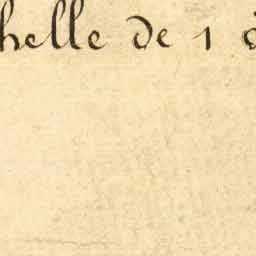 helle de 1 à